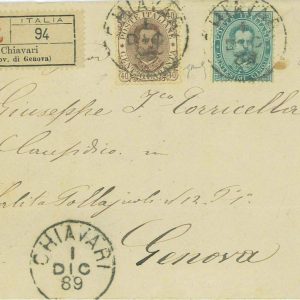 ITALIA
94
Chiavari
(ov. di Genova)
CHIAVARI
POSTE ITALIANE
40
CHIAVARI
DIC
89
Giuseppe Torricella
Causidico in
Salita Pollajuoli n. 12
Genova
CHIAVARI
1
DIC
89